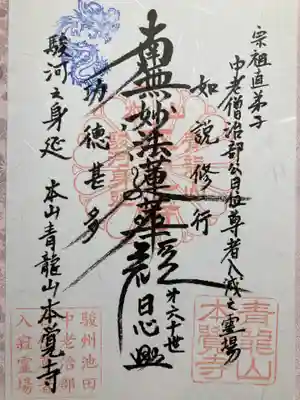 宗祖直弟子
中老僧治部公日位尊者入滅之霊場
如説修行
南無妙法蓮華経
第六十世
日心
功徳甚多
駿河之身延 本山青龍山本覚寺
青龍山
本覚寺
駿州池田
中老治部
入寂霊場